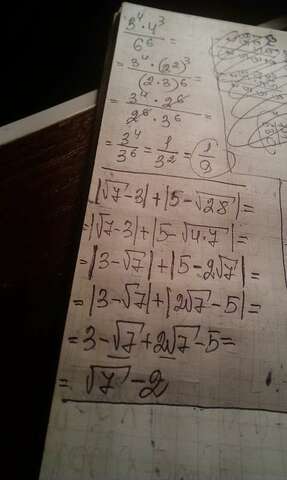 3⁴·4³/6⁶=
=3⁴·(2²)³/(2·3)⁶=
=3⁴·2⁶/2⁶·3⁶=
=3⁴/3⁶=1/3²=1/9
|√7-3|+|5-√28|=
=|√7-3|+|5-√4·7|=
=|3-√7|+|5-2√7|=
=|3-√7|+|2√7-5|=
=3-√7+2√7-5=
=√7-2